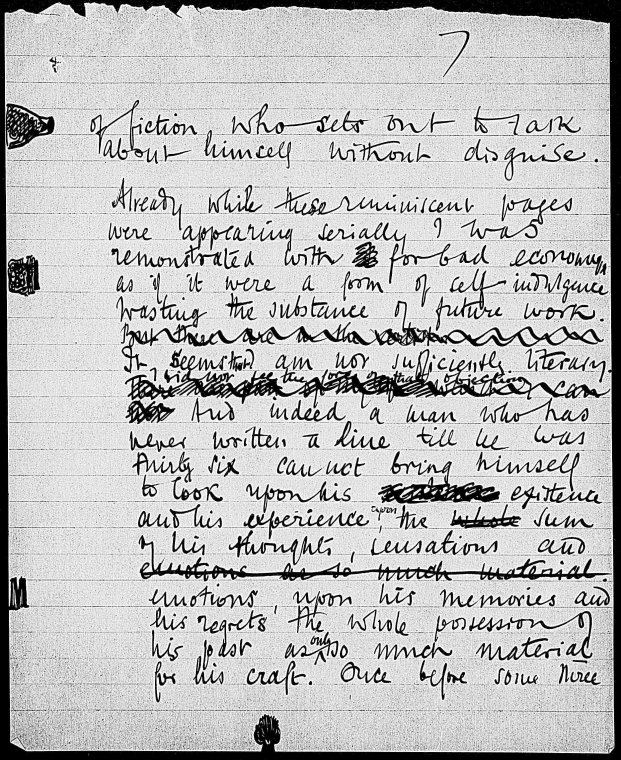 7
of fiction who sets out to talk
about himself without disguise.
Already while these reminiscent pages
were appearing serially I was
remonstrated with for bad economy,
as if it were a form of self-indulgence
wasting the substance of future work.
It seems that I am not sufficiently literary.
And indeed a man who has
never written a line till he was
thirty six cannot bring himself
to look upon his existence
and his experience, upon the whole sum
of his thoughts, sensations and
emotions as so much material.
emotions, upon his memories and
his regrets the whole possession of
his past as only so much material
for his craft. Once before some three
M